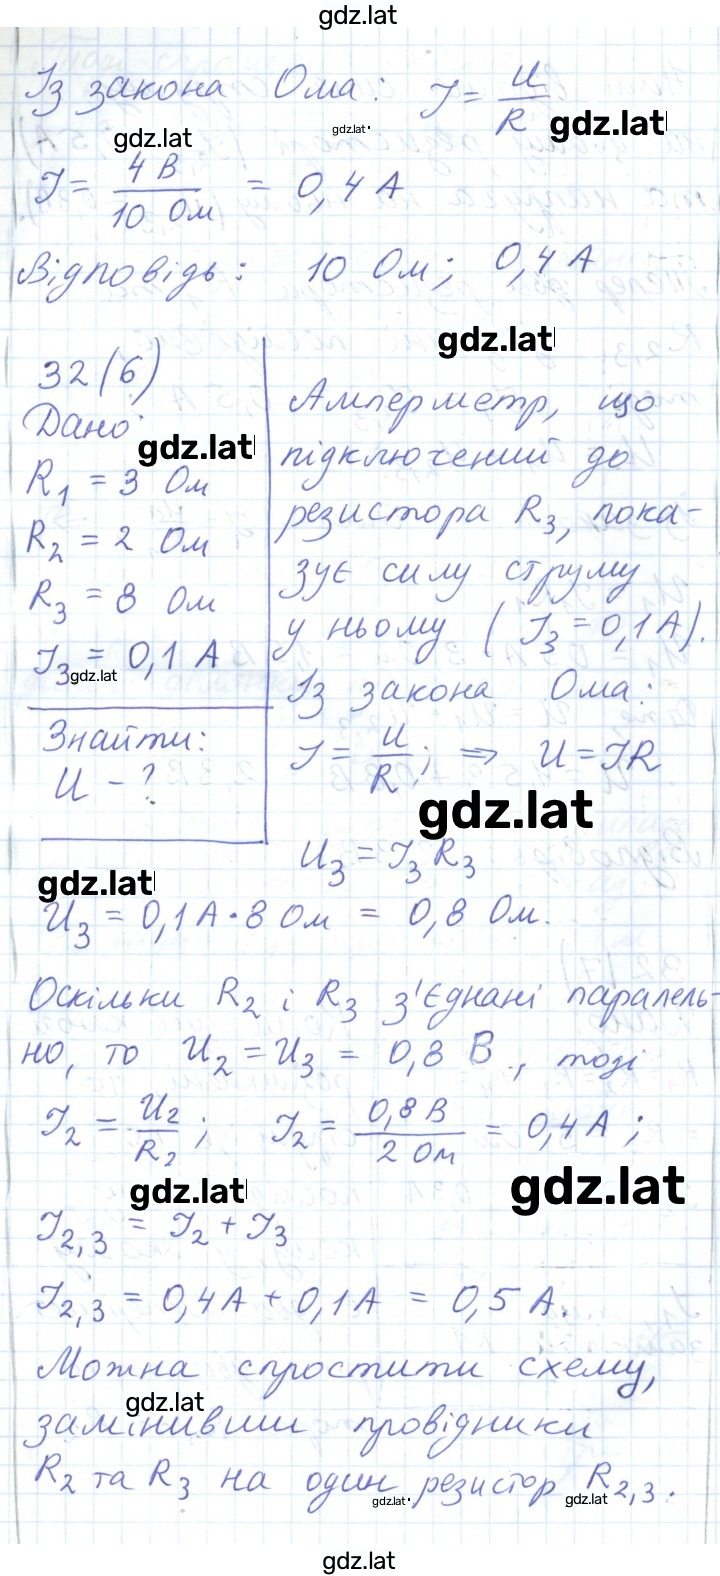 gdz.lat
Із закона Ома: I = U/R
gdz.lat gdz.lat gdz.lat
I = 4 В / 10 Ом = 0,4 А
Відповідь: 10 Ом; 0,4 А
gdz.lat
32(6)
Дано:
gdz.lat
R1 = 3 Ом
R2 = 2 Ом
R3 = 8 Ом
I3 = 0,1 А
gdz.lat
Знайти:
U - ?
Амперметр, що
підключений до
резистора R3, пока-
зує силу струму
у ньому (I3 = 0,1 А).
Із закона Ома:
I = U/R; ⇒ U = IR
gdz.lat
U3 = I3 R3
gdz.lat
U3 = 0,1 А · 8 Ом = 0,8 Ом.
Оскільки R2 і R3 з'єднані паралель-
но, то U2 = U3 = 0,8 В, тоді
I2 = U2/R2; I2 = 0,8 В / 2 Ом = 0,4 А;
gdz.lat gdz.lat
I2,3 = I2 + I3
I2,3 = 0,4 А + 0,1 А = 0,5 А.
Можна спростити схему,
gdz.lat
замінивши провідники
R2 та R3 на один резистор R2,3.
gdz.lat gdz.lat
gdz.lat